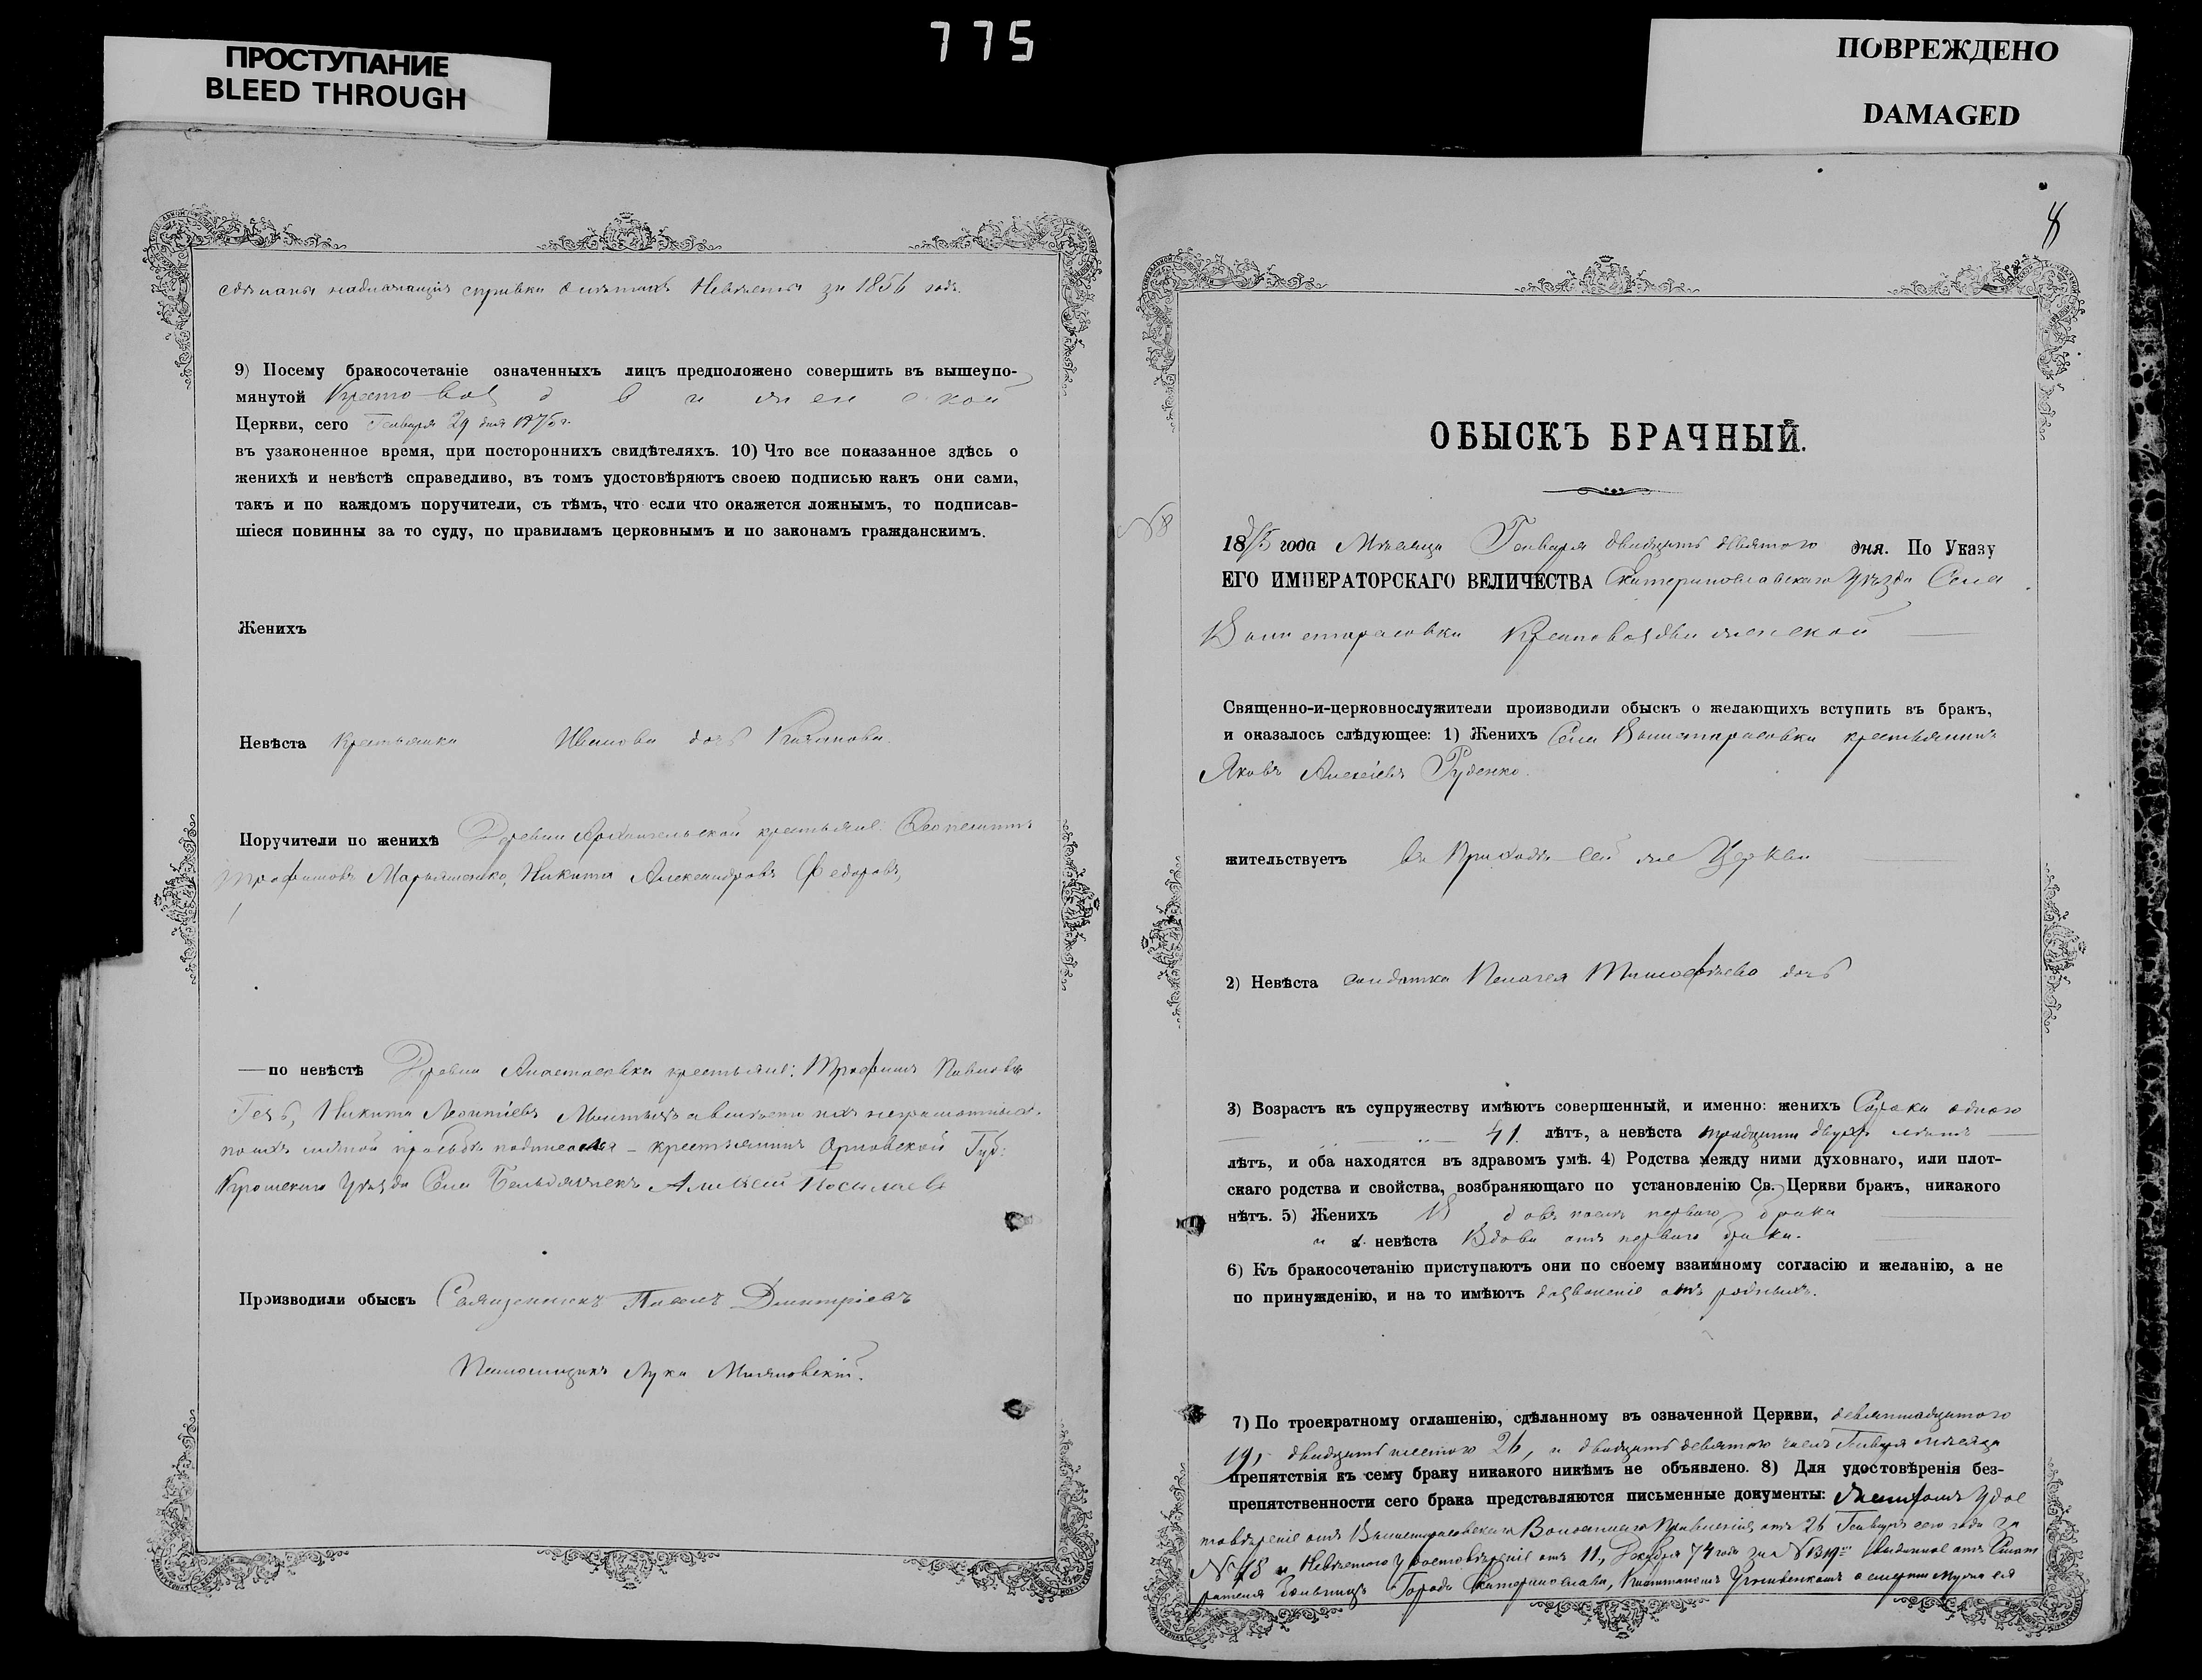 775
ПРОСТУПАНИЕ
BLEED THROUGH
ПОВРЕЖДЕНО
DAMAGED
справки Невѣсты за 1856 годъ.
9) Посему бракосочетаніе означенныхъ лицъ предположено совершить въ вышеупо-
мянутой Кресто-воздвиженской
Церкви, сего Генваря 29 дня 1875 г.
въ узаконенное время, при постороннихъ свидѣтеляхъ. 10) Что все показанное здѣсь о
женихѣ и невѣстѣ справедливо, въ томъ удостовѣряютъ своею подписью какъ они сами,
такъ и по каждомъ поручители, съ тѣмъ, что если что окажется ложнымъ, то подписав-
шіеся повинны за то суду, по правиламъ церковнымъ и по законамъ гражданскимъ.
Женихъ
Невѣста Крестьянка Иванова дочь
Поручители по женихѣ Деревни Архангельской крестьяне:
Трофимовъ Марьяшенко, Никита Александровъ Федоровъ,
— по невѣстѣ Деревни Анастасовки крестьяне: Трофимъ Павловъ
Никита Леонтіевъ
крестьянинъ Орловской Губ:
Уѣзда Села Алексѣй
Производили обыскъ Священникъ Павелъ Дмитріевъ
Псаломщикъ Лука
8
ОБЫСКЪ БРАЧНЫЙ.
№8
1875 года Мѣсяца Генваря двадцать девятого дня. По Указу
ЕГО ИМПЕРАТОРСКАГО ВЕЛИЧЕСТВА Екатеринославскаго Уѣзда Села
Вышетарасовки Крестовоздвиженской
Священно-и-церковнослужители производили обыскъ о желающихъ вступить въ бракъ,
и оказалось слѣдующее: 1) Женихъ Села Вышетарасовки крестьянинъ
Яковъ Алексіевъ Руденко.
жительствуетъ въ Приходѣ сей же Церкви
2) Невѣста солдатка Пелагея Тимофѣева дочь
3) Возрастъ къ супружеству имѣютъ совершенный, и именно: женихъ Сорока одного
41. лѣтъ, а невѣста тридцати двухъ лѣтъ
лѣтъ, и оба находятся въ здравомъ умѣ. 4) Родства между ними духовнаго, или плот-
скаго родства и свойства, возбраняющаго по установленію Св. Церкви бракъ, никакого
нѣтъ. 5) Женихъ Вдовъ послѣ перваго брака
и невѣста Вдова отъ перваго брака.
6) Къ бракосочетанію приступаютъ они по своему взаимному согласію и желанію, а не
по принужденію, и на то имѣютъ дозволеніе отъ родныхъ.
7) По троекратному оглашенію, сдѣланному въ означенной Церкви, девятнадцатого
19, двадцать шестого 26, и двадцать девятого числъ Генваря мѣсяца
препятствія къ сему браку никакого никѣмъ не объявлено. 8) Для удостовѣренія без-
препятственности сего брака представляются письменные документы: Женихомъ Удос
товѣреніе отъ Вышетарасовскаго Волостнаго Правленія отъ 26 Генваря сего года за
№ 48 и Невѣстою Удостовѣреніе отъ 11, Декабря 74 года за № 1319 выданное отъ
больницъ Города Екатеринослава, о смерти мужа ея